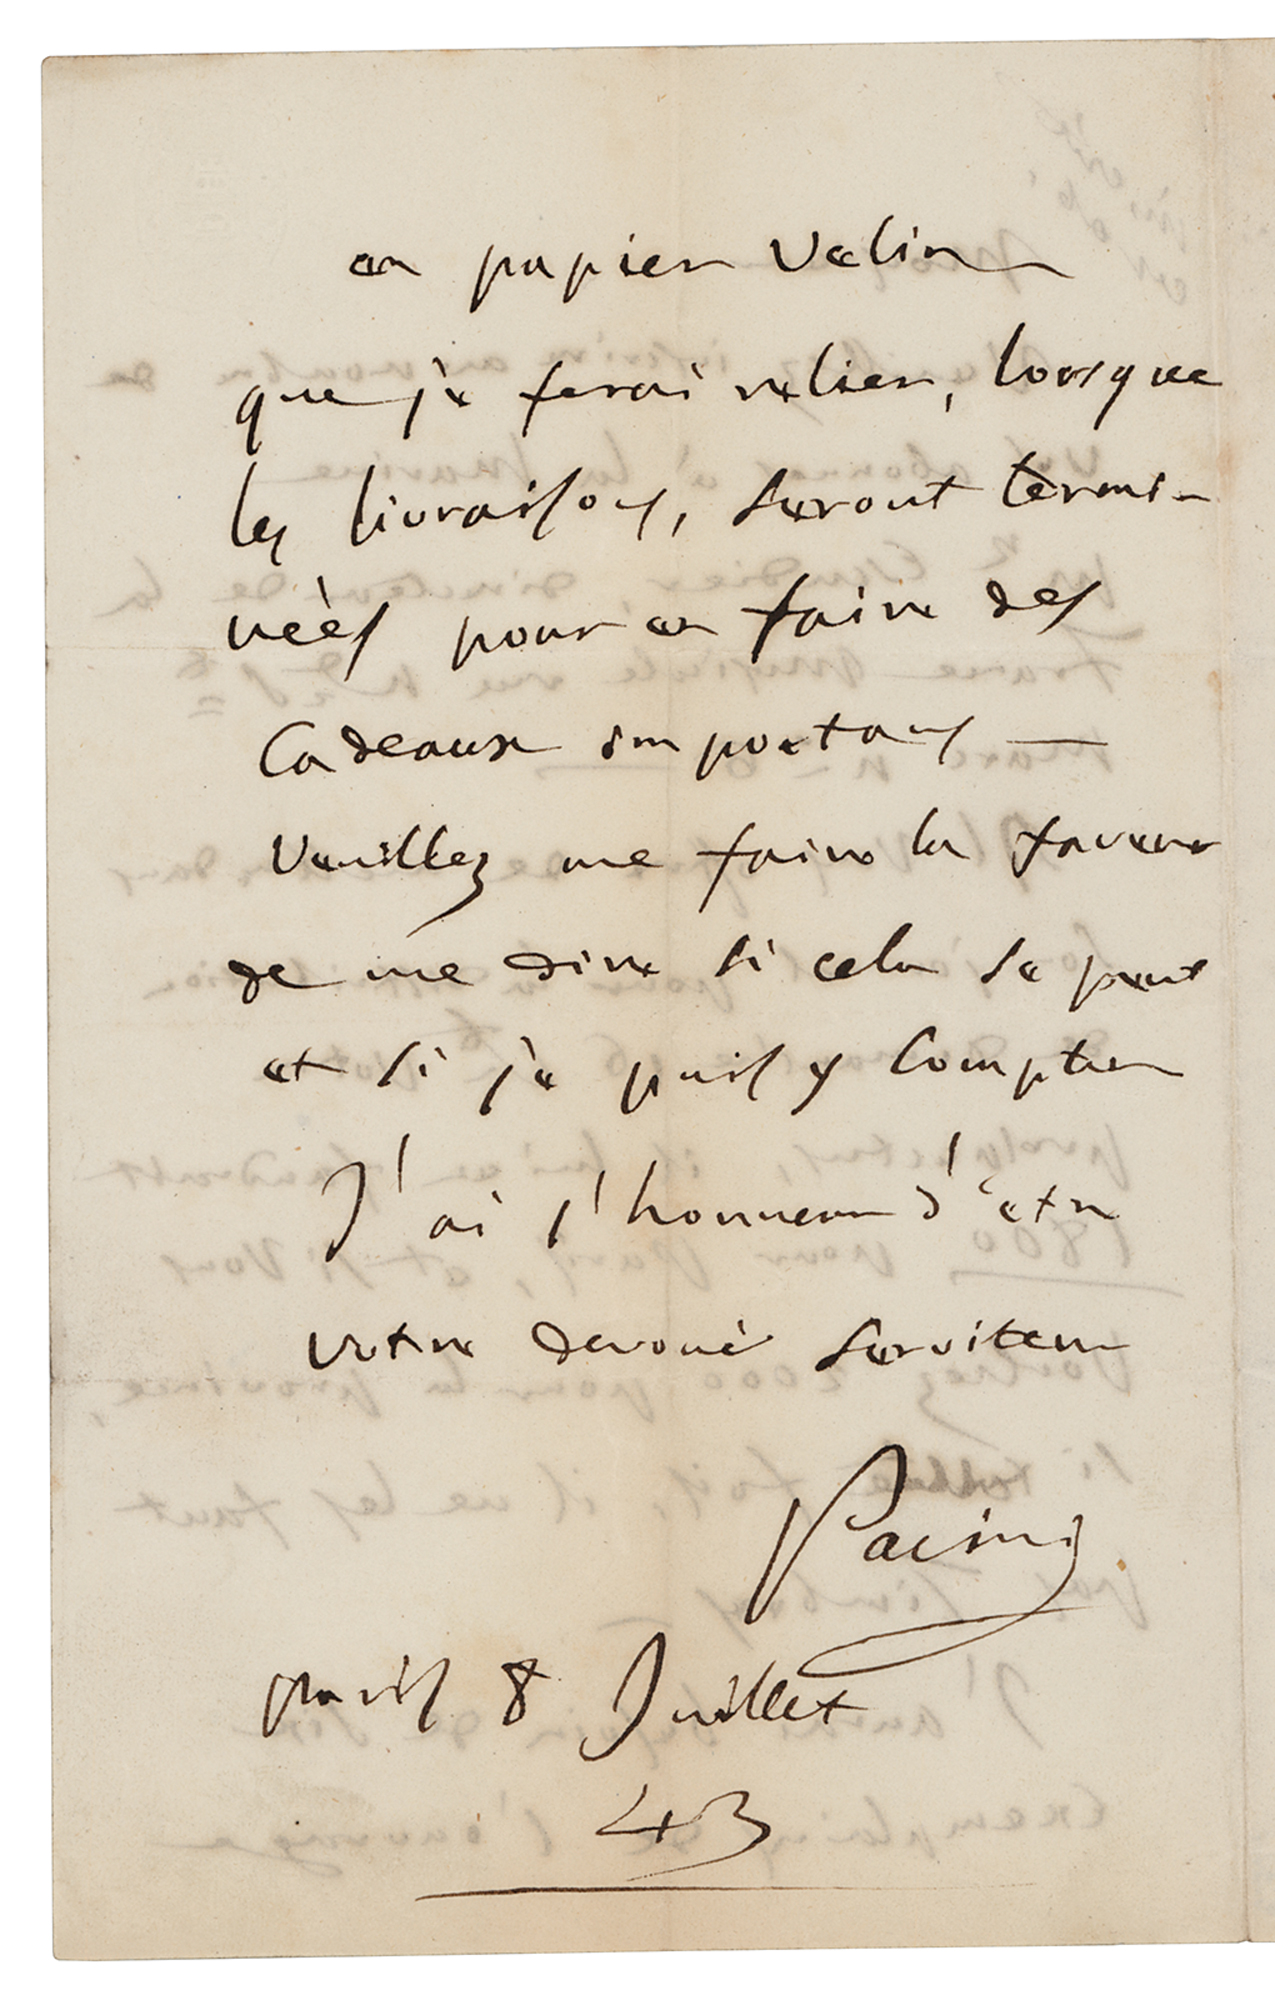 en papier velin
que je ferai relier, lorsque
les livraisons, seront termi-
nèes pour en faire des
Cadeaux importans —
Veuillez me faire la faveur
de me dire si cela se peut
et si je puis y Compter
J'ai l'honneur d'être
votre devoué serviteur
Pacini
paris 8 Juillet
43